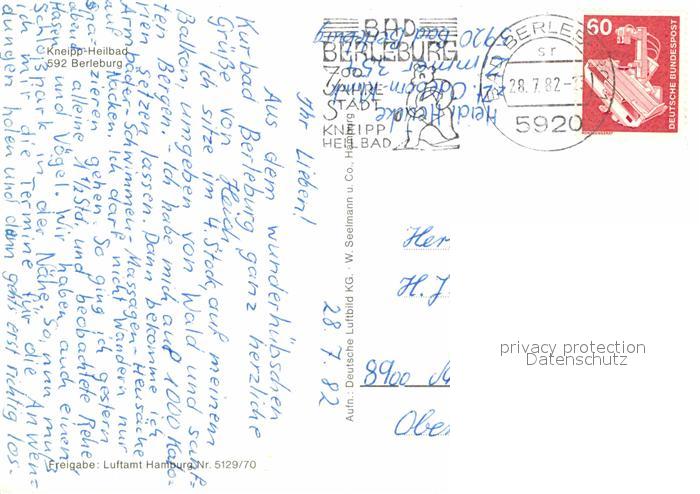 Kneipp-Heilbad
592 Berleburg
Ihr Lieben!
28. 7. 82
Aus dem wunderhübschen
Kurbad Berleburg ganz herzliche
Grüße von Heidi.
Ich sitze im 4. Stock, auf meinem
Balkon, umgeben von Wald und sanf-
ten Bergen. Ich habe mich auf 1000 Kalo-
rien setzen lassen. Dann bekomme ich
Armbäder-Schwimmen-Massagen-Heusäcke
auf Nacken. Ich darf nicht Wandern nur
spazieren gehen. So ging ich gestern
abend alleine 1 1/2 Std. und beobachtete Rehe
Hasen und Vögel. Wir haben auch einen
Schloßpark in der Nähe. So, nun muß
ich mir die Termine für die Anwen-
dungen holen und dann gehts erst richtig los.
Freigabe: Luftamt Hamburg Nr. 5129/70
Aufn.: Deutsche Luftbild KG. · W. Seelmann u. Co., Hamburg
Heidi
z. Zt. Odeborn-Klinik
Zimmer 254
5920 Bad Berleburg
BAD
BERLEBURG
700
JAHRE
STADT
KNEIPP
HEILBAD
BERLEB
sr
28.7.82-
5920
60
DEUTSCHE BUNDESPOST
Her
H. J.
8900 A
Obe
privacy protection
Datenschutz